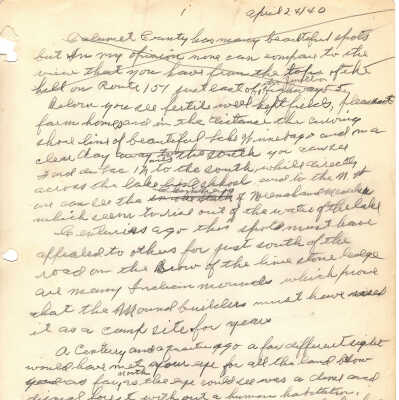 1
April 24/40
Calumet County has many beautiful spots
but in my opinion none can compare to the
view that you have from the top of the
hill on Route 151 just east of
Below you see fertile well kept fields, pleasant
farm homes and in the distance the curving
shore line of beautiful Lake Winnebago and on a
clear day away to the south you can see
Fond du Lac to the south, while directly
across the lake and to the N.W.
we can see the of Neenah and Menasha
which seem to rise out of the water of the lake
Centuries ago this spot must have
appealed to others for just south of the
road on the brow of the lime stone ledge
are many Indian mounds which prove
that the Mound builders must have used
it as a camp site for years
A Century and a quarter ago a far different sight
would have met your eye for all this land below
as far north as the eye could see was a dense and
dismal forest with out a human habitation,